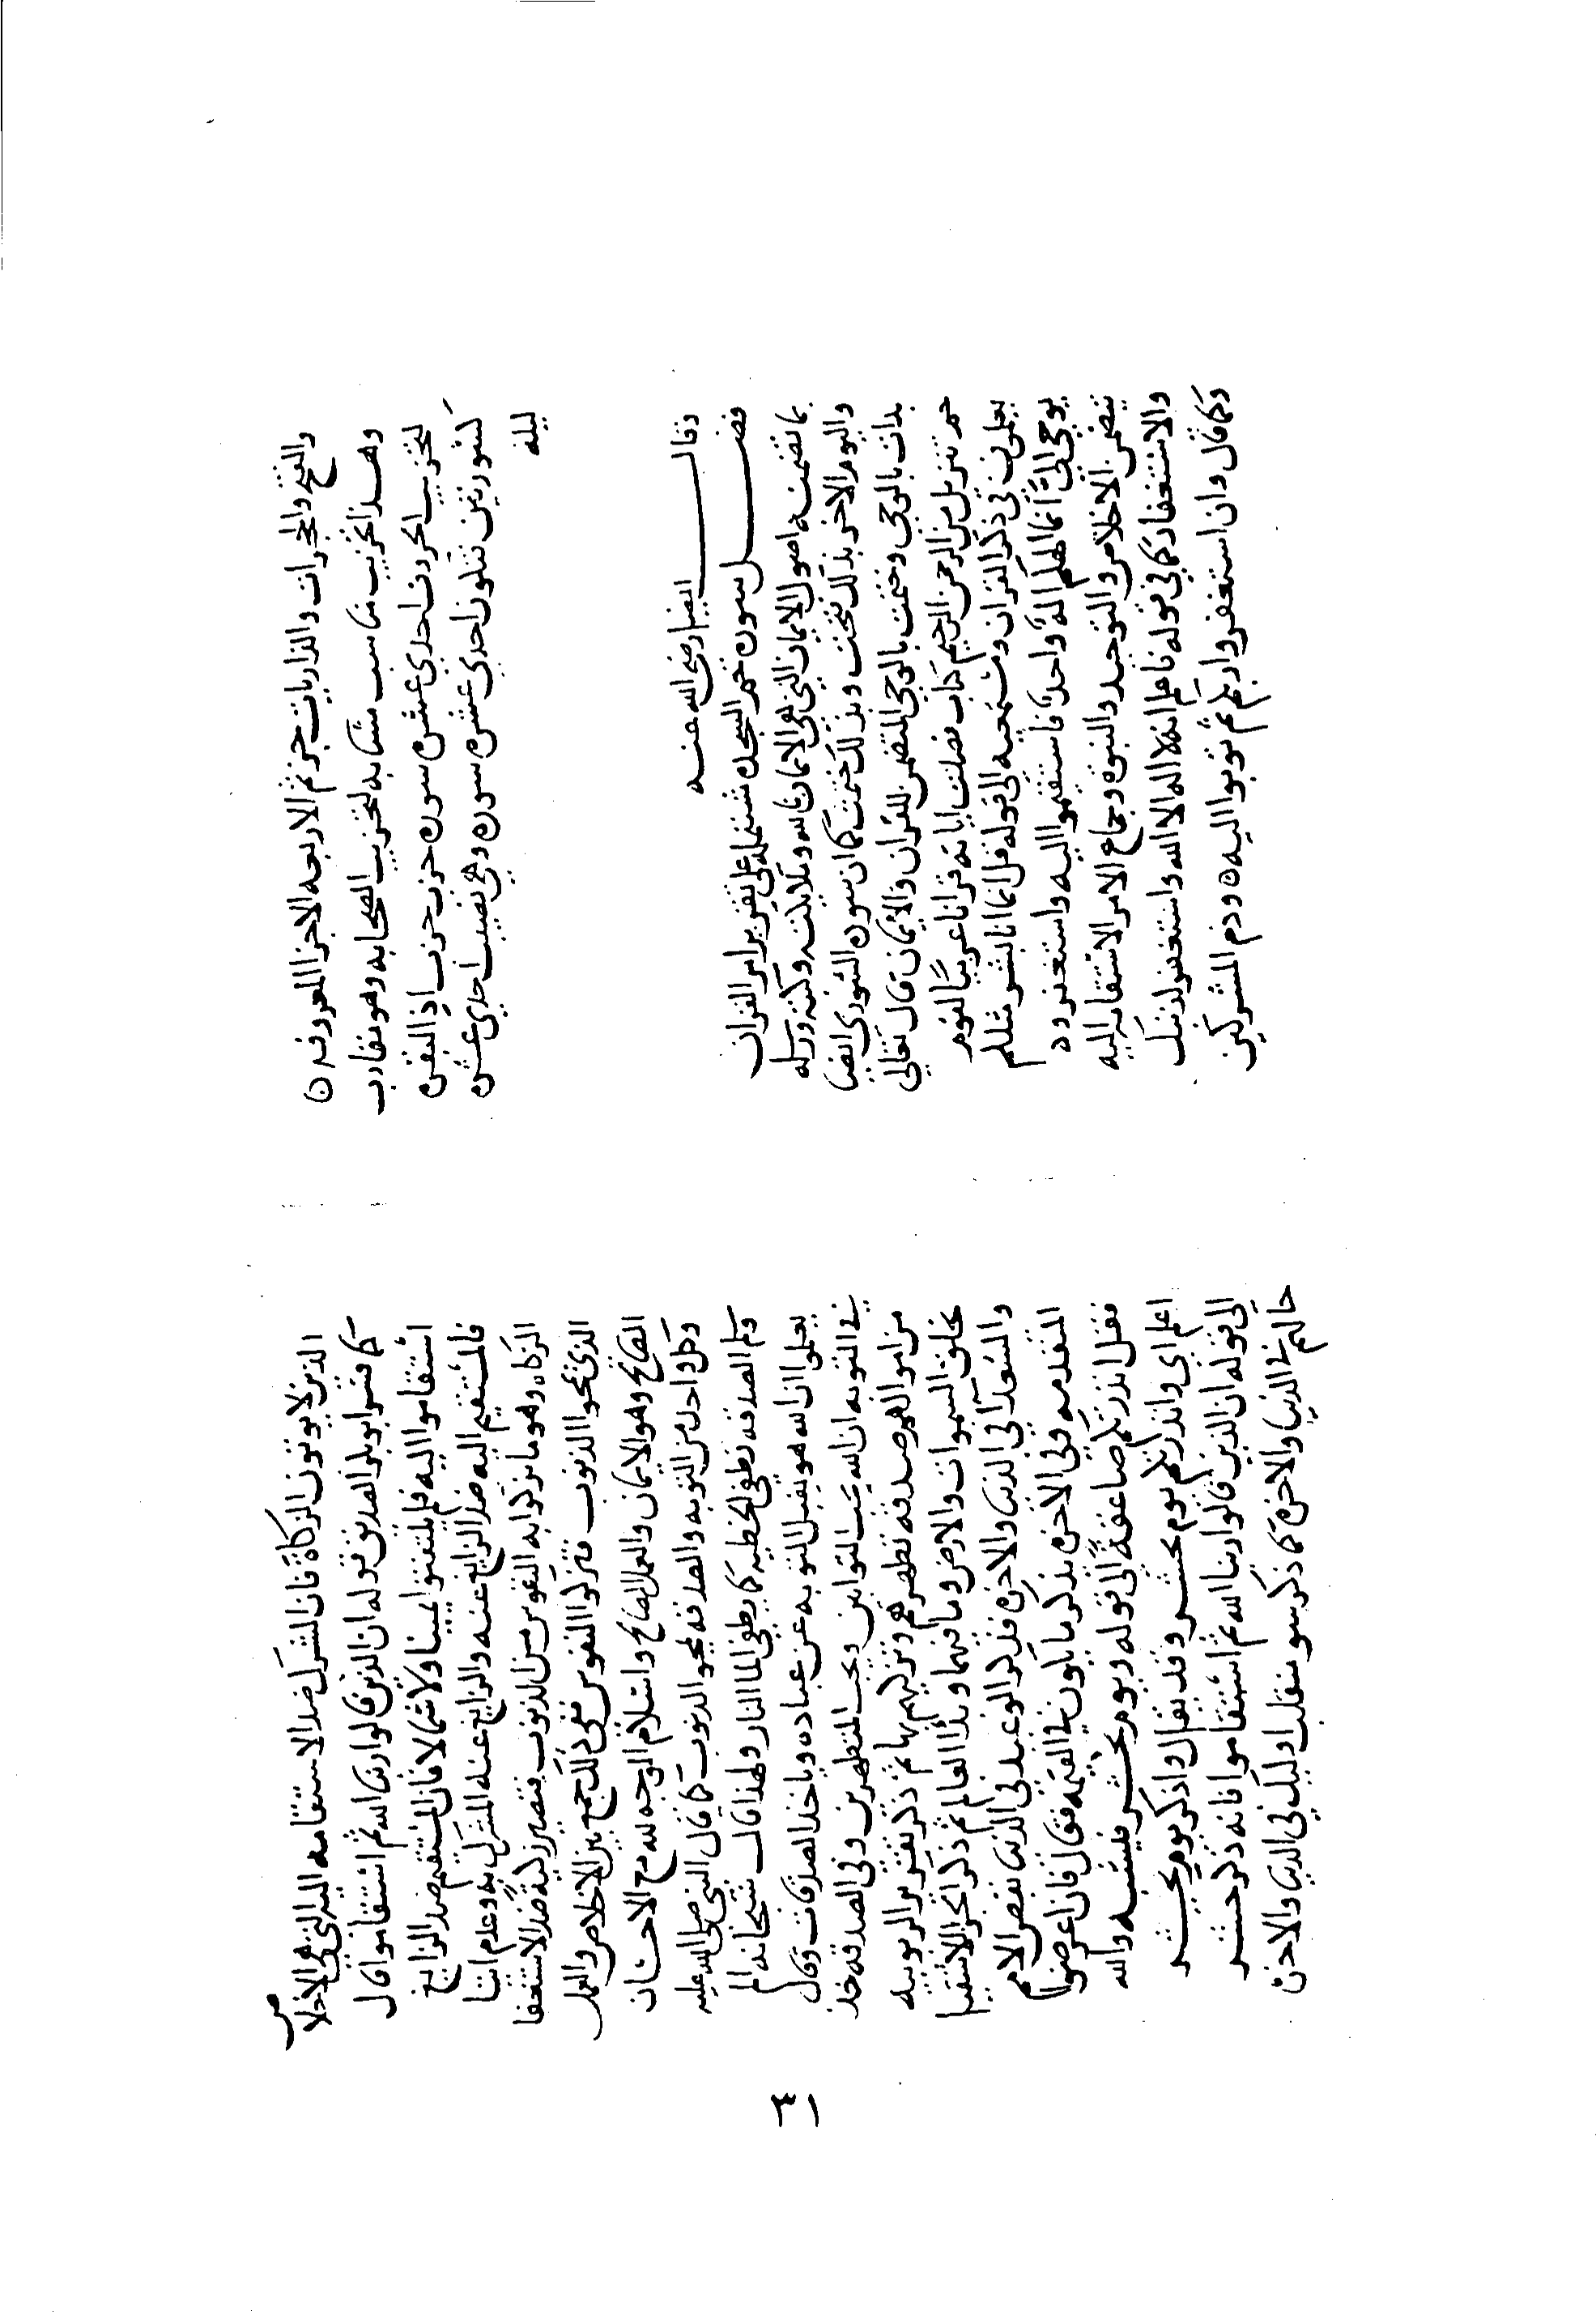 والفتح والحجرات والذاريات جزء ثم الاربعه الاجزا المعروفه ه
وهـــذا تحزيب مناسب مشابه لتحزيب الصحابه وهو مقارب
لتحزيب الحروف احدي عشره سوره حزب حزب اذ البقره
كسورتين تتلون احدي عشره سوره وهي نصيب احدي عشره
ليله
وقالـــــــ ايضا رضي الله عنه
فصـــــــل سورة حم السجده مشتمله على تقرير امر القران
بما تضمنته اصول الايمان التي هي الايمان بالله وملايكته وكتبه ورسله
واليوم الاخر بذلك فتحت وبذلك ختمت كما ان سورة الشوري ايضا
بدات بالوحي وختمت بالوحي المتضمن للقران والايمان قال تعالى
حم تنزيل من الرحمن الرحيم كتاب فصلت اياته قرانا عربيا لقوم
يعلمون في ذكر القران ومستمعيه الى قوله قل انما انا بشر مثلكم
يوحى اليَّ انما الهكم اله واحد فاستقيموا اليه واستغفروه
يتضمن الاخلاص والتوحيد والنبوة وجماع الامر الاستقامه اليه
والاستغفار كما في قوله فاعلم انه لا اله الا الله واستغفر لذنبك
وكما قال وان استغفروا ربكم ثم توبوا اليه ه وذم المشركين
الذين لا يوتون الزكاة فان الشرك ضد الاستقامه اليه التي هي الاخلاص
كما فسر ابو بكر الصديق قوله ان الذين قالوا ربنا الله ثم استقاموا قال
استقاموا اليه فلم يلتفتوا يمينا ولا شمالا فان المستقيم ضد الزايغ
فالمستقيم اليه ضد الزايغ عنه والزايغ عنه المشرك به وعدم ايتا
الزكاه وهو ما تزكوا به النفوس من الذنوب فتصير زكية ضد الاستغفا
الذي يمحوا الذنوب فتزكوا النفوس ففي ذلك جمع بين الاخلاص والعمل
الصالح وهو الايمان والعمل الصالح واسلام الوجه لله مع الاحسان
وكل واحد من التوبه والصدقه يمحو الذنوب كما قال النبي صلى الله عليه
وسلم الصدقه تطفي الخطيه كما يطفي الما النار ولهذا قال سبحانه الم
يعلموا ان الله هو يقبل التوبه عن عباده وياخذ الصدقات وقال
في التوبه ان الله يحب التوابين ويحب المتطهرين وفي الصدقه خذ
من اموالهم صدقه تطهرهم وتزكيهم بها ثم ذكر تقرير الربوبيه
بخلق السموات والارض وما فيهما وبدا العالم ثم ذكر اخر الاشقيا
والسعدا في الدنيا والاخرة فذكر الوعيد في الدنيا بقصص الامم
المتقدمه وفي الاخرة بذكر ما يكون في القيمه فقال فان اعرضوا
فقل انذرتكم صاعقة الى قوله ويوم يحشر فينسه والله
اعلم اي وانذرتكم يوم يحشر وقد يقال واذكر يوم يحشر
الى قوله ان الذين قالوا ربنا الله ثم استقاموا فانه ذكر حشر
حالهم في الدنيا والاخرة كما ذكر سو منقلب اوليك في الدنيا والاخرة